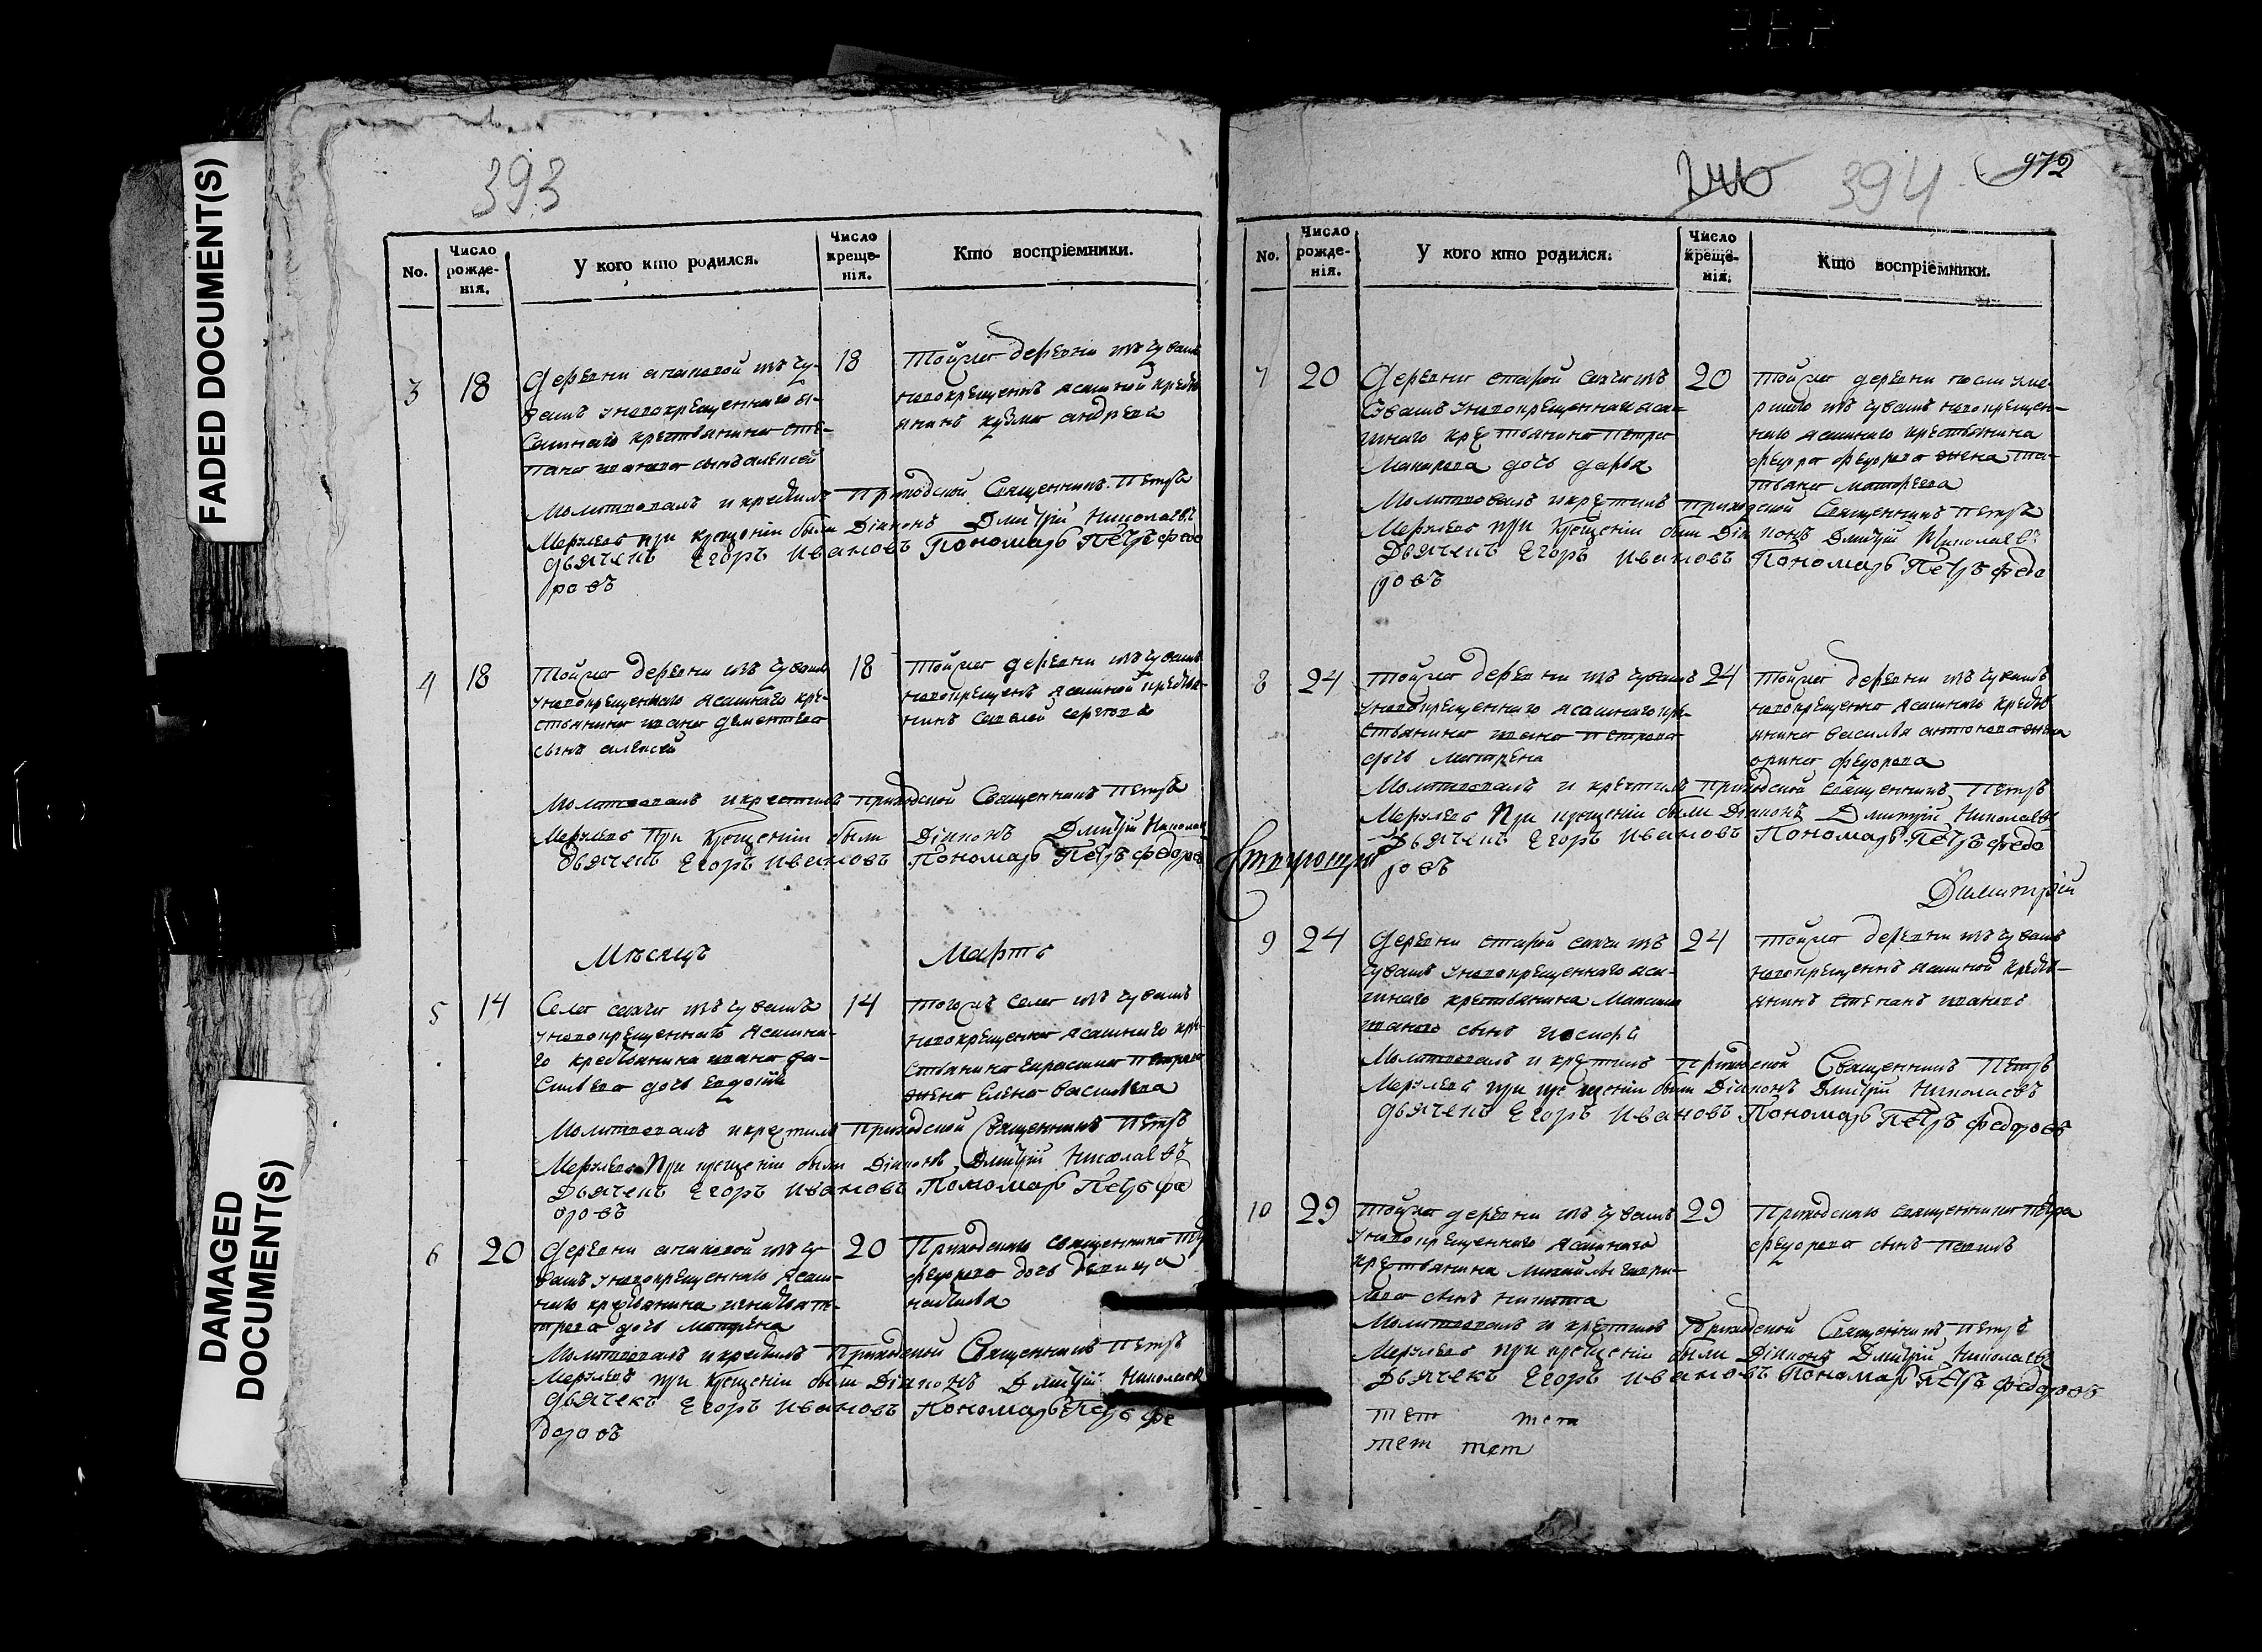 FADED DOCUMENT(S)
DAMAGED
DOCUMENT(S)
393
No.
Число рожде-нія.
У кого кто родился.
Число креще-нія.
Кто воспріемники.
3 18
Деревни из чу-
вашъ у новокрещеннаго я-
сашнаго крестьянина Сте-
пана Иванова сынъ Алексей
18
Тойже деревни изъ чувашъ
новокрещенъ ясашной кресть
янинъ Кузма Андреевъ
Молитвовалъ и крестилъ приходской Священникъ Петръ
при крещеніи были Діаконъ Дмитрій Николаевъ
Дьячекъ Егоръ Ивановъ Пономарь Петръ Федо
ровъ
4 18
Тойже деревни изъ чувашъ
у новокрещеннаго ясашнаго кре-
стьянина Ивана Дементьева
сынъ Алексей
18
Тойже деревни изъ чувашъ
новокрещенъ ясашной крестья-
нинъ Савелей Сергеевъ
Молитвовалъ и крестилъ приходской Священникъ Петръ
при крещеніи были Діаконъ Дмитрій Николае
Дьячекъ Егоръ Ивановъ Пономарь Петръ Федоров
Мѣсяцъ Мартъ
5 14
Села изъ чувашъ
у новокрещеннаго ясашна-
го крестьянина Ивана Ва-
сильева дочь Евдокія
14
Тогожъ села изъ чувашъ
новокрещена ясашнаго кре-
стьянина Петрова
жена Елена Васильева
Молитвовалъ и крестилъ приходской Священникъ Петръ
При крещеніи были Діаконъ Дмитрій Николаевъ
Дьячекъ Егоръ Ивановъ Пономарь Петръ Фе
доровъ
6 20
Деревни изъ чу-
вашъ у новокрещеннаго ясаш-
наго крестьянина
дочь Матрена
20
Приходскаго священника
Федорова дочь девица
Молитвовалъ и крестилъ Приходской Священникъ Петръ
при крещеніи были Діаконъ Дмитрій Николаевъ
Дьячекъ Егоръ Ивановъ Пономарь Петръ Фе
доровъ
394
972
No.
Число рожде-нія.
У кого кто родился.
Число креще-нія.
Кто воспріемники.
7 20
Деревни старой изъ
чувашъ у новокрещеннаго яса-
шнаго крестьянина Петра
Макарова дочь Дарья
20
Тойже деревни после уме-
ршаго изъ чувашъ новокрещен-
наго ясашнаго крестьянина
Федора Федорова жена Та-
тьяна
Молитвовалъ и крестилъ приходской Священникъ Петръ
при крещеніи были Діаконъ Дмитрій Николаевъ
Дьячекъ Егоръ Ивановъ Пономарь Петръ Федо
ровъ
8 24
Тойже деревни изъ чувашъ
у новокрещеннаго ясашнаго кре-
стьянина Ивана Петрова
дочь Матрена
24
Тойже деревни изъ чувашъ
новокрещена ясашнаго кресть
янина Василья Антонова жена
Федорова
Молитвовалъ и крестилъ Приходской Священникъ Петръ
При крещеніи были Діаконъ Дмитрій Николаевъ
Дьячекъ Егоръ Ивановъ Пономарь Петръ Федо
ровъ
Димитрій
9 24
Деревни старой изъ
чувашъ у новокрещеннаго яса-
шнаго крестьянина Максима
Иванова сынъ Иосифъ
24
Тойже деревни изъ чувашъ
новокрещенъ ясашной кресть-
янинъ Степанъ Ивановъ
Молитвовалъ и крестилъ приходской Священникъ Петръ
при крещеніи были Діаконъ Дмитрій Николаевъ
Дьячекъ Егоръ Ивановъ Пономарь Петръ Федоровъ
10 29
Тойже деревни изъ чувашъ
у новокрещеннаго ясашнаго
крестьянина Михайлы Гаври-
лова сынъ Никита
29
Приходскаго священника Петра
Федорова сынъ Павелъ
Молитвовалъ и крестилъ Приходской Священникъ Петръ
при крещеніи были Діаконъ Дмитрій Николаевъ
Дьячекъ Егоръ Ивановъ Пономарь Петръ Федоровъ